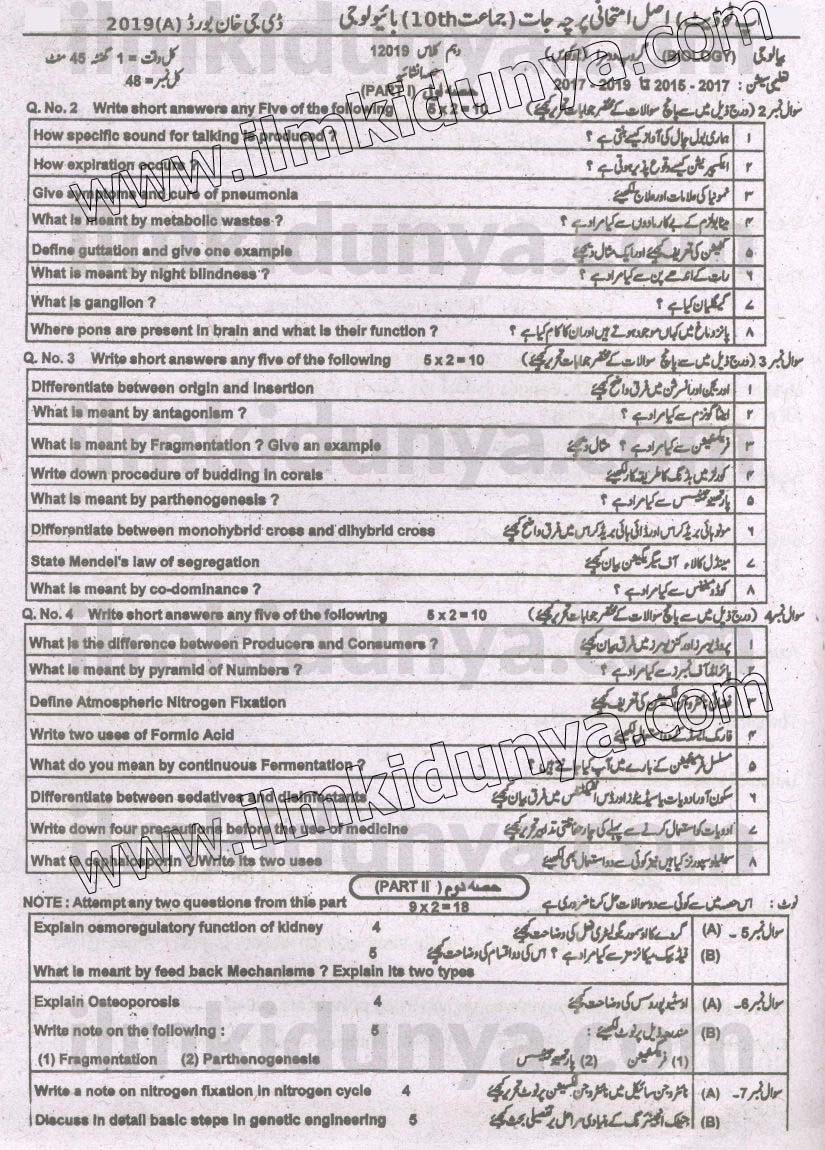 اصل امتحانی پرچہ جات (جماعت 10th) بائیولوجی ڈی جی خان بورڈ 2019 (A)
بیالوجی (BIOLOGY) دہم کلاس 12019 کل وقت = 1 گھنٹہ 45 منٹ
تعلیمی سیشن : 2015 - 2017 تا 2017 - 2019 کل نمبر = 48
حصہ اول (PART I)
Q. No. 2 Write short answers any Five of the following 5 x 2 = 10 سوال نمبر 2 (درج ذیل میں سے پانچ سوالات کے مختصر جوابات تحریر کیجئے)
How specific sound for talking is produced ? ہماری بول چال کی آواز کیسے بنتی ہے ؟ ۱
How expiration occurs ? ایکسپریشن کیسے وقوع پذیر ہوتی ہے ؟ ۲
Give symptoms and cure of pneumonia نمونیا کی علامات اور علاج لکھیئے ۳
What is meant by metabolic wastes ? میٹابولزم کے بے کار مادوں سے کیا مراد ہے ؟ ۴
Define guttation and give one example گٹیشن کی تعریف کیجئے اور ایک مثال دیجئے ۵
What is meant by night blindness ? رات کے اندھے پن سے کیا مراد ہے ؟ ۶
What is ganglion ? گینگلیان کیا ہے ؟ ۷
Where pons are present in brain and what is their function ? پانز دماغ میں کہاں موجود ہوتے ہیں اور ان کا کام کیا ہے ؟ ۸
Q. No. 3 Write short answers any five of the following 5 x 2 = 10 سوال نمبر 3 (درج ذیل میں سے پانچ سوالات کے مختصر جوابات تحریر کیجئے)
Differentiate between origin and insertion اوریجن اور انسرشن میں فرق واضح کیجئے ۱
What is meant by antagonism ? اینٹاگونزم سے کیا مراد ہے ؟ ۲
What is meant by Fragmentation ? Give an example فریگمنٹیشن سے کیا مراد ہے ؟ مثال دیجئے ۳
Write down procedure of budding in corals کورلز میں بڈنگ کا طریقہ کار لکھیئے ۴
What is meant by parthenogenesis ? پارتھینوجینیسس سے کیا مراد ہے ؟ ۵
Differentiate between monohybrid cross and dihybrid cross مونوہائی برڈ کراس اور ڈائی ہائی برڈ کراس میں فرق واضح کیجئے ۶
State Mendel's law of segregation مینڈل کا لاء آف سیگریگیشن بیان کیجئے ۷
What is meant by co-dominance ? کوڈومیننس سے کیا مراد ہے ؟ ۸
Q. No. 4 Write short answers any five of the following 5 x 2 = 10 سوال نمبر 4 (درج ذیل میں سے پانچ سوالات کے مختصر جوابات تحریر کیجئے)
What is the difference between Producers and Consumers ? پروڈیوسرز اور کنزیومرز میں فرق بیان کیجئے ۱
What is meant by pyramid of Numbers ? پائرامڈ آف نمبرز سے کیا مراد ہے ؟ ۲
Define Atmospheric Nitrogen Fixation فضائی نائٹروجن فکسیشن کی تعریف کیجئے ۳
Write two uses of Formic Acid فارمک ایسڈ کے دو استعمال لکھیئے ۴
What do you mean by continuous Fermentation ? مسلسل فرمنٹیشن کے بارے میں آپ کیا جانتے ہیں ؟ ۵
Differentiate between sedatives and disinfectants سکون آور ادویات یا سیڈیٹوز اور ڈس انفیکٹنٹس میں فرق بیان کیجئے ۶
Write down four precautions before the use of medicine ادویات کا استعمال کرنے سے پہلے کی چار حفاظتی تدابیر تحریر کیجئے ۷
What is cephalosporin ? Write its two uses سیفلوسپورنز کیا ہیں نیز کوئی سے دو استعمال بھی لکھیئے ۸
حصہ دوم (PART II)
NOTE : Attempt any two questions from this part 9 x 2 = 18 نوٹ : اس حصہ میں سے کوئی سے دو سوالات حل کرنا ضروری ہے
Explain osmoregulatory function of kidney 4 گردے کا اوسموریگولیٹری فعل کی وضاحت کیجئے (A) سوال نمبر 5-
5 فیڈ بیک میکانزمز سے کیا مراد ہے ؟ اس کی دو اقسام کی وضاحت کیجئے (B)
What is meant by feed back Mechanisms ? Explain its two types
Explain Osteoporosis 4 اوسٹیوپوروسس کی وضاحت کیجئے (A) سوال نمبر 6-
Write note on the following : 5 مندرجہ ذیل پر نوٹ لکھیئے : (B)
(1) Fragmentation (2) Parthenogenesis (1) فریگمنٹیشن (2) پارتھینوجینیسس
Write a note on nitrogen fixation in nitrogen cycle 4 نائٹروجن سائیکل میں نائٹروجن فکسیشن پر نوٹ تحریر کیجئے (A) سوال نمبر 7-
Discuss in detail basic steps in genetic engineering 5 جینیٹک انجینئرنگ کے بنیادی مراحل پر تفصیلی بحث کیجئے (B)
www.ilmkidunya.com
www.ilmkidunya.com
ilmkidunya.com
ilmkidunya.com
ilmkidunya.com
ilmkidunya.com
ilmkidunya.com
ilmkidunya.com